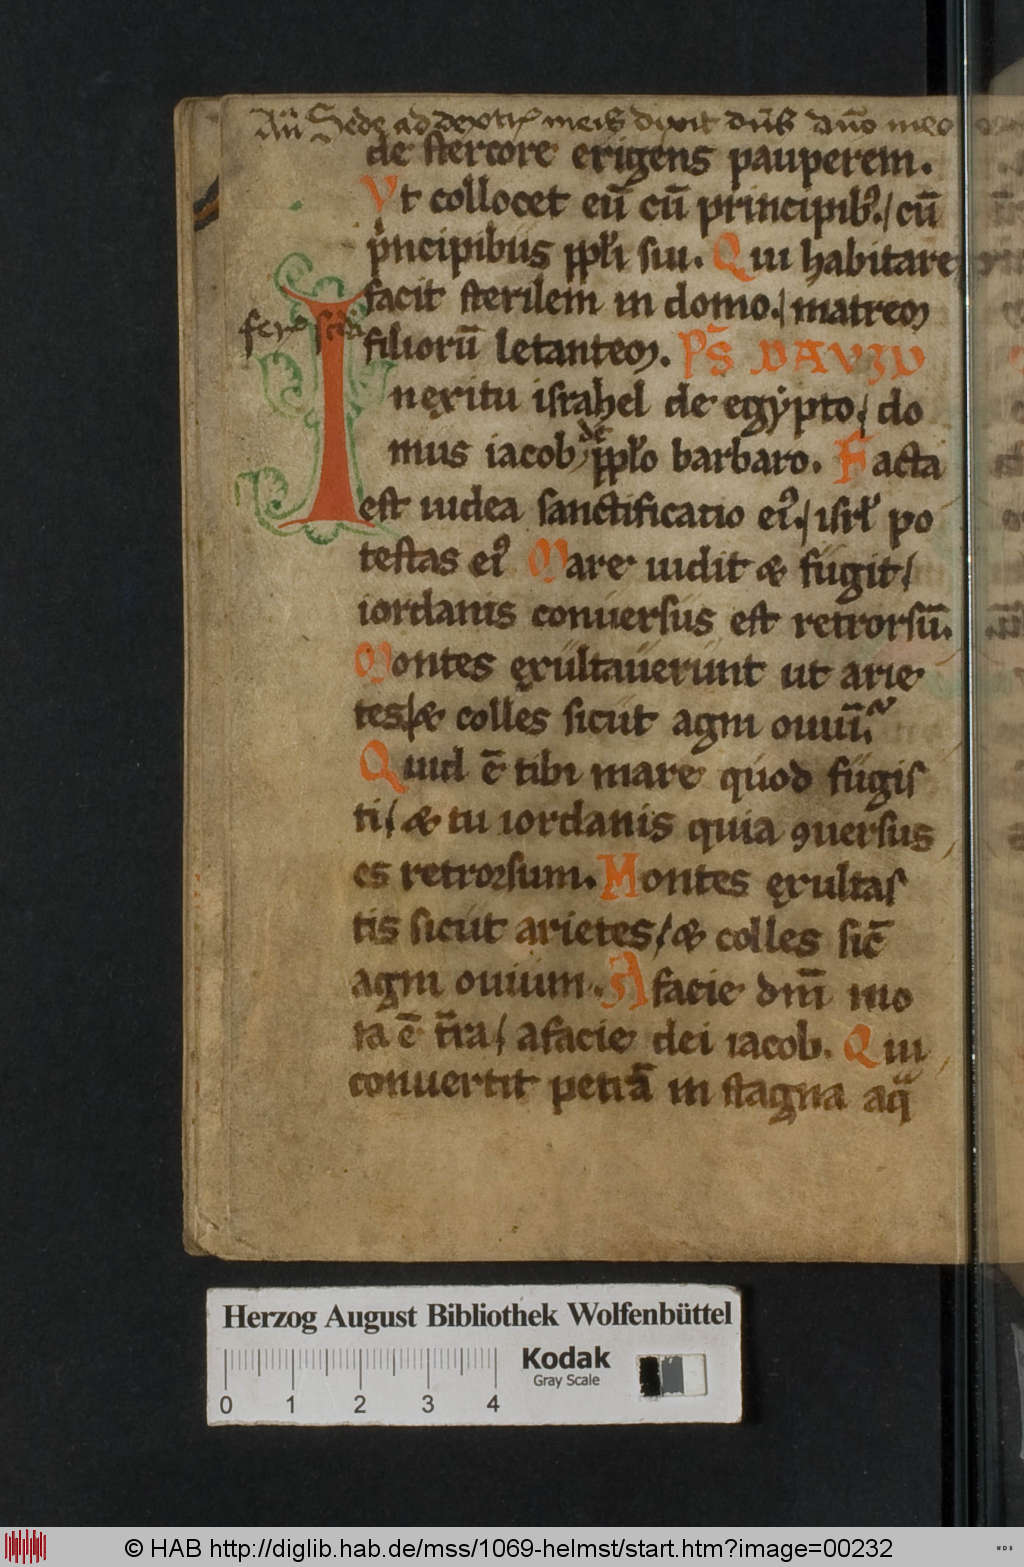 Añ Sede ad dextrꝭ meis dixit dn̄s dn̄o meo
de stercore erigens pauperem.
Vt collocet eū cū principibꝰ./ cū
pͥncipibus ppl̄i sui. Qui habitare
facit sterilem in domo./ matrem
filiorū letantem. PS̄ DAVID
In exitu israhel de egẏpto,/ do
mus iacob de ppl̄o barbaro. Facta
est iudea sanctificatio eiꝰ./ isrl̄ po
testas eiꝰ Mare uidit & fugit/
iordanis conuersus est retrorsū.
Montes ęxultauerunt ut arie
tes/& colles sicut agni ouiū.
Quid ē tibi mare quod fugis
ti/ & tu iordanis quia ꝯuersus
es retrorsum. Montes ęxultas
tis sicut arietes/& colles sic̄
agni ouium. A facie dn̄i mo
ta ē t̄ra/ afacie dei iacob. Qui
conuertit petrā in stagna aq̄
feͬ scda
Herzog August Bibliothek Wolfenbüttel
Kodak
Gray Scale
0 1 2 3 4
© HAB http://diglib.hab.de/mss/1069-helmst/start.htm?image=00232